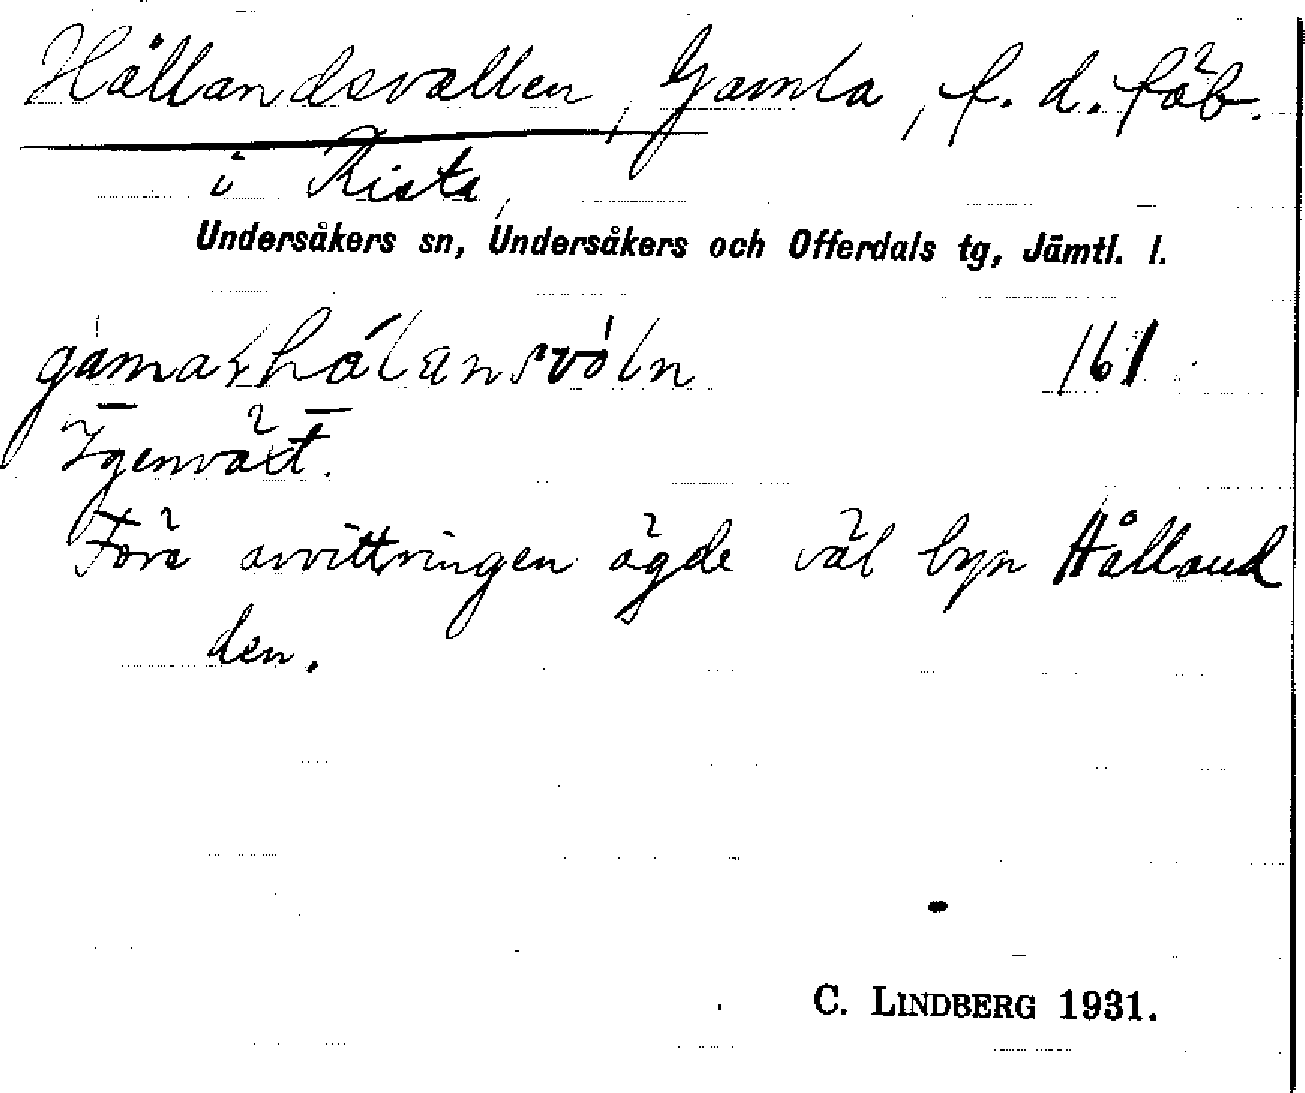 Hållandsvallen, Gamla, f. d. fäb.
i Rista,
Undersåkers sn, Undersåkers och Offerdals tg, Jämtl. l.
161
Igenväxt.
Före avvittringen ägde väl byn Hålland
den.
C. LINDBERG 1931.